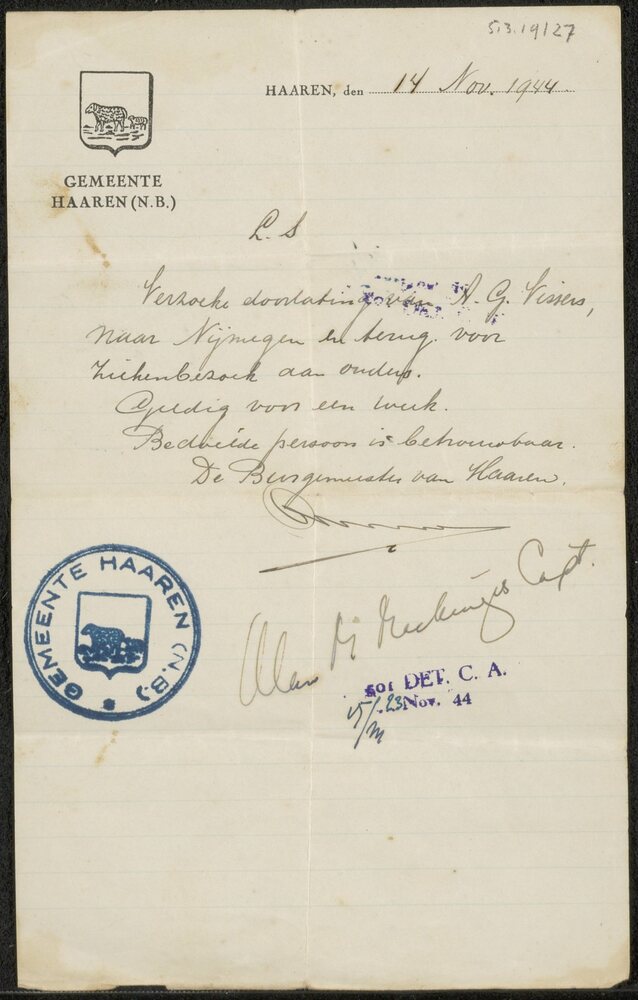 513.19/27
HAAREN, den 14 Nov. 1944.
GEMEENTE
HAAREN (N.B.)
L. S
Verzoeke doorlating van A. G. Vissers,
naar Nijmegen en terug. voor
ziekenbezoek aan ouders.
Geldig voor een week.
Bedoelde persoon is betrouwbaar.
De Burgemeester van Haaren.
GEMEENTE HAAREN (N.B.)
Alan Capt.
DET. C. A.
23 Nov. 44